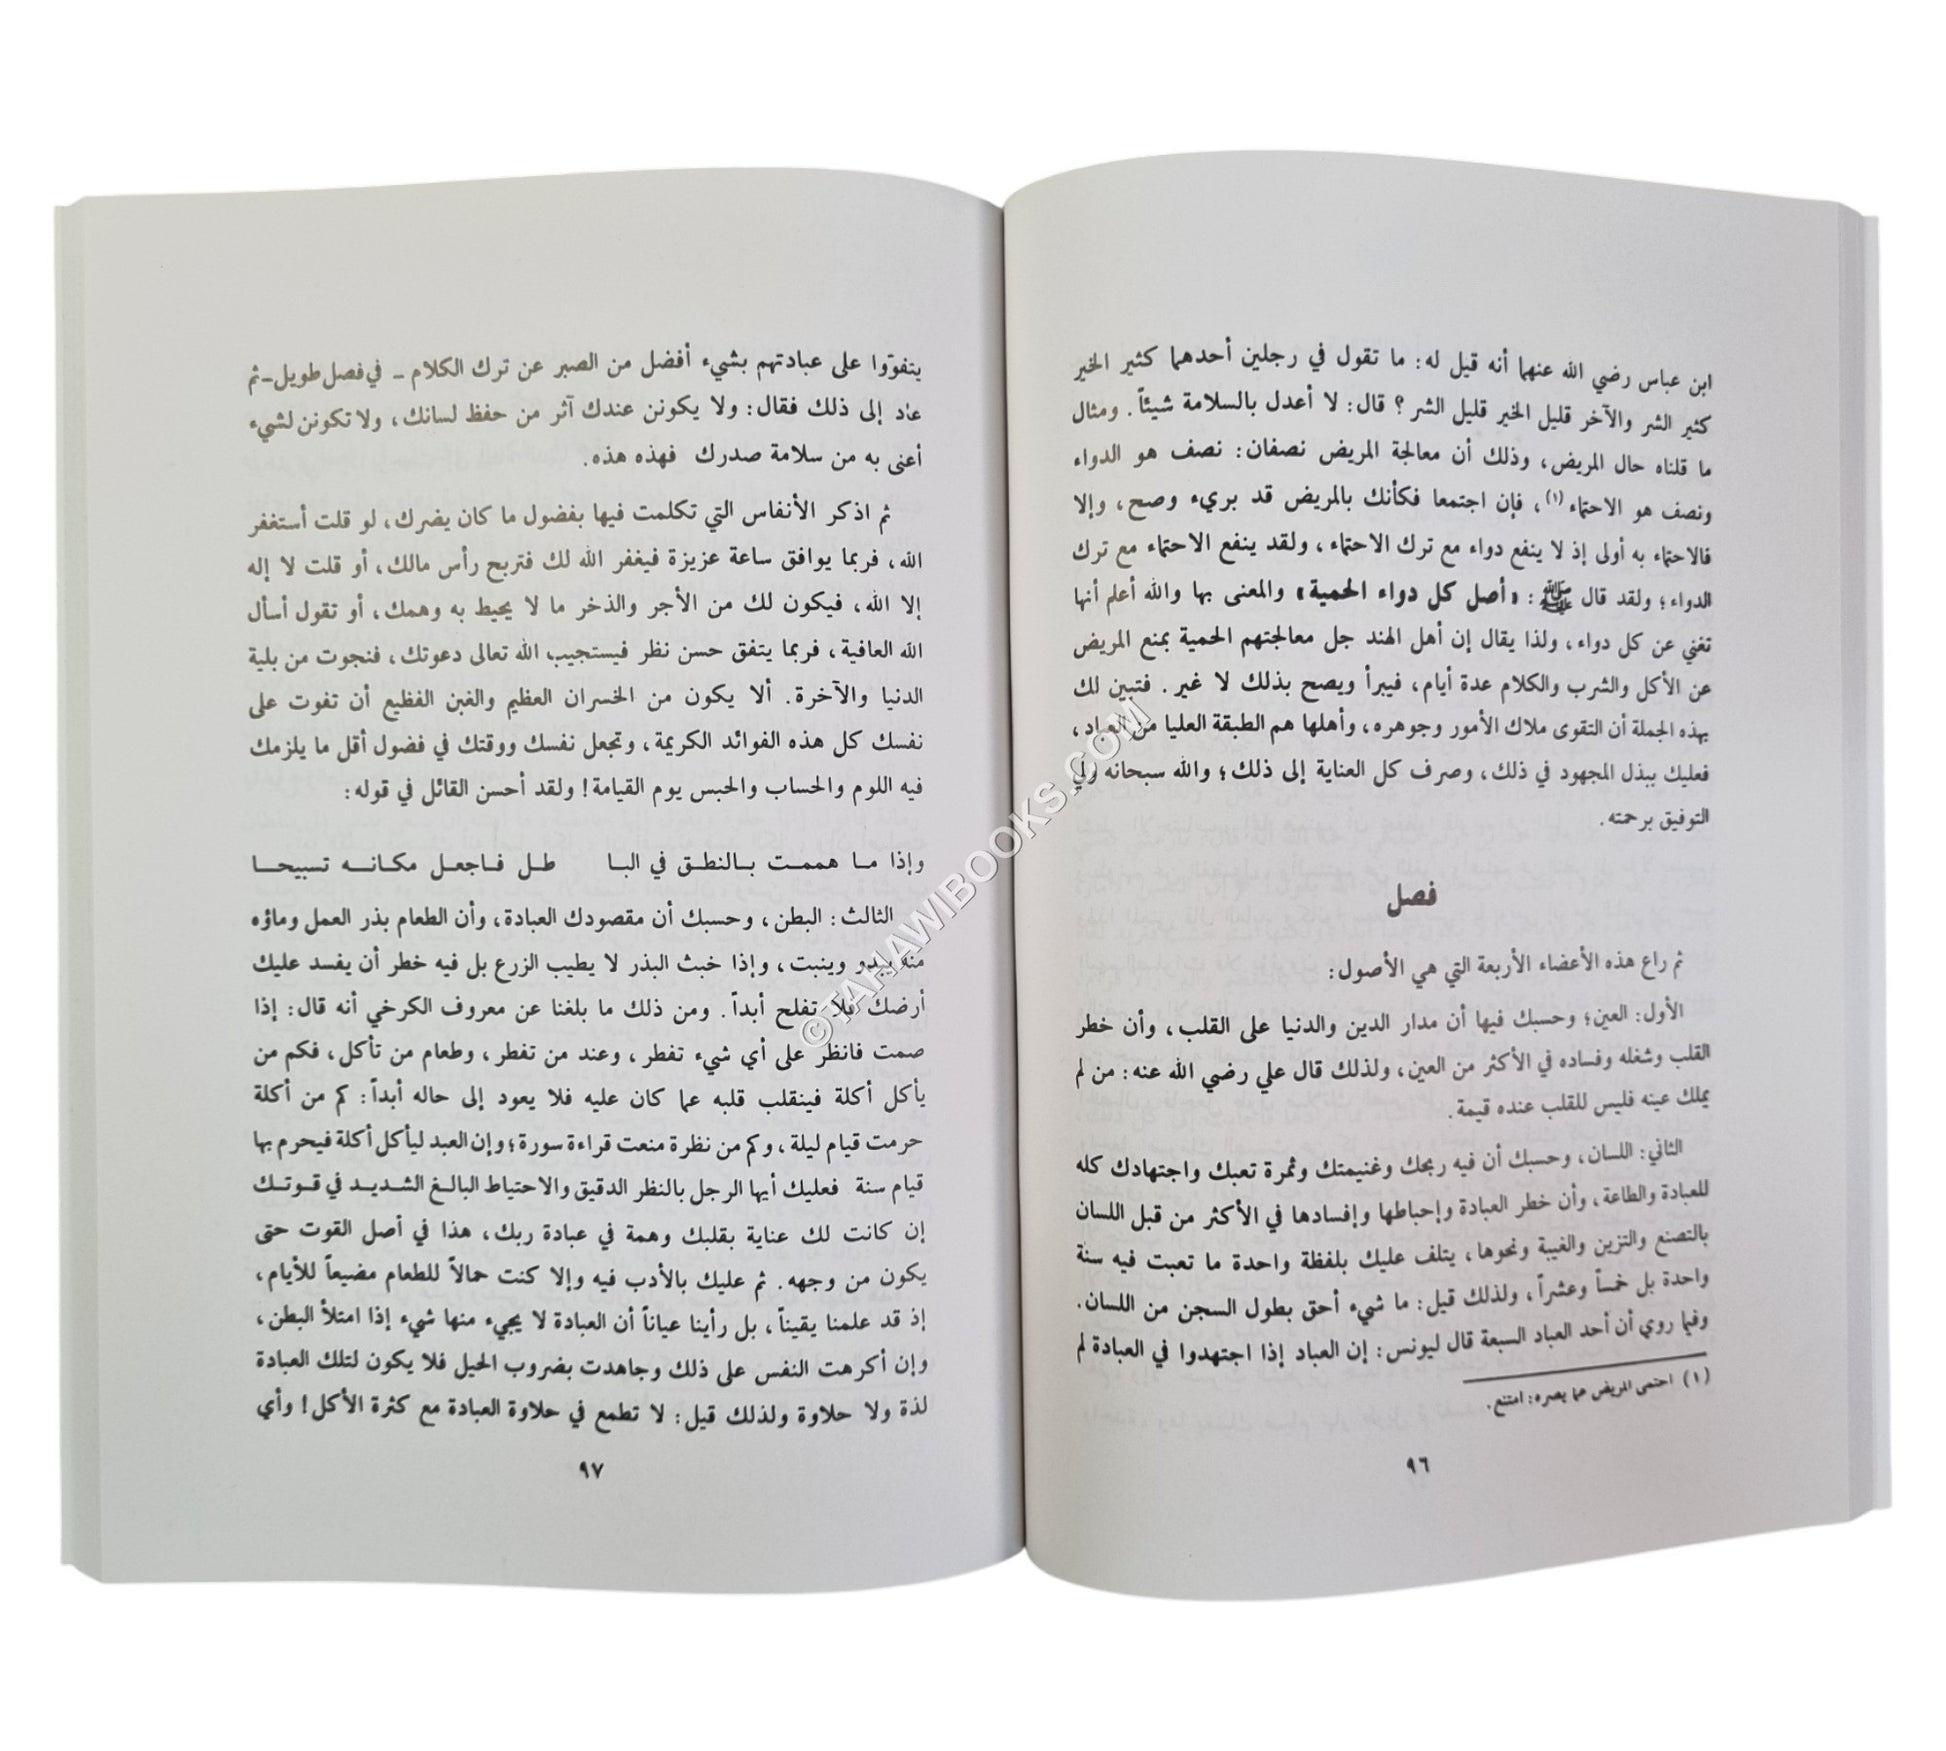 ابن عباس رضي الله عنهما أنه قيل له: ما تقول في رجلين أحدهما كثير الخير
كثير الشر والآخر قليل الخير قليل الشر؟ قال: لا أعدل بالسلامة شيئاً. ومثال
ما قلناه حال المريض، وذلك أن معالجة المريض نصفان: نصف هو الدواء
ونصف هو الاحتماء (١)، فإن اجتمعا فكأنك بالمريض قد بريء وصح، وإلا
فالاحتماء به أولى إذ لا ينفع دواء مع ترك الاحتماء، ولقد ينفع الاحتماء مع ترك
الدواء؛ ولقد قال ﷺ: «أصل كل دواء الحمية» والمعنى بها والله أعلم أنها
تغني عن كل دواء، ولذا يقال إن أهل الهند جل معالجتهم الحمية بمنع المريض
عن الأكل والشرب والكلام عدة أيام، فيبرأ ويصح بذلك لا غير. فتبين لك
بهذه الجملة أن التقوى ملاك الأمور وجوهره، وأهلها هم الطبقة العليا من العباد،
فعليك ببذل المجهود في ذلك، وصرف كل العناية إلى ذلك؛ والله سبحانه ولي
التوفيق برحمته.
فصل
ثم راع هذه الأعضاء الأربعة التي هي الأصول:
الأول: العين؛ وحسبك فيها أن مدار الدين والدنيا على القلب، وأن خطر
القلب وشغله وفساده في الأكثر من العين، ولذلك قال علي رضي الله عنه: من لم
يملك عينه فليس للقلب عنده قيمة.
الثاني: اللسان، وحسبك أن فيه ربحك وغنيمتك وثمرة تعبك واجتهادك كله
للعبادة والطاعة، وأن خطر العبادة وإحباطها وإفسادها في الأكثر من قبل اللسان
بالتصنع والتزين والغيبة ونحوها، يتلف عليك بلفظة واحدة ما تعبت فيه سنة
واحدة بل خمساً وعشراً، ولذلك قيل: ما شيء أحق بطول السجن من اللسان.
وفيما روي أن أحد العباد السبعة قال ليونس: إن العباد إذا اجتهدوا في العبادة لم
(١) احتمى المريض عما يضره: امتنع.
٩٦
يتفوّوا على عبادتهم بشيء أفضل من الصبر عن ترك الكلام - في فصل طويل - ثم
عاد إلى ذلك فقال: ولا يكونن عندك آثر من حفظ لسانك، ولا تكونن لشيء
أعنى به من سلامة صدرك فهذه هذه.
ثم اذكر الأنفاس التي تكلمت فيها بفضول ما كان يضرك، لو قلت أستغفر
الله، فربما يوافق ساعة عزيزة فيغفر الله لك فتربح رأس مالك، أو قلت لا إله
إلا الله، فيكون لك من الأجر والذخر ما لا يحيط به وهمك، أو تقول أسأل
الله العافية، فربما يتفق حسن نظر فيستجيب الله تعالى دعوتك، فنجوت من بلية
الدنيا والآخرة. ألا يكون من الخسران العظيم والغبن الفظيع أن تفوت على
نفسك كل هذه الفوائد الكريمة، وتجعل نفسك ووقتك في فضول أقل ما يلزمك
فيه اللوم والحساب والحبس يوم القيامة! ولقد أحسن القائل في قوله:
وإذا ما هممت بالنطق في البا طل فاجعل مكانه تسبيحا
الثالث: البطن، وحسبك أن مقصودك العبادة، وأن الطعام بذر العمل وماؤه
منه يبدو وينبت، وإذا خبث البذر لا يطيب الزرع بل فيه خطر أن يفسد عليك
أرضك فلا تفلح أبداً. ومن ذلك ما بلغنا عن معروف الكرخي أنه قال: إذا
صمت فانظر على أي شيء تفطر، وعند من تفطر، وطعام من تأكل، فكم من
يأكل أكلة فينقلب قلبه عما كان عليه فلا يعود إلى حاله أبداً: كم من أكلة
حرمت قيام ليلة، وكم من نظرة منعت قراءة سورة؛ وإن العبد ليأكل أكلة فيحرم بها
قيام سنة فعليك أيها الرجل بالنظر الدقيق والاحتياط البالغ الشديد في قوتك
إن كانت لك عناية بقلبك وهمة في عبادة ربك، هذا في أصل القوت حتى
يكون من وجهه. ثم عليك بالأدب فيه وإلا كنت حمالاً للطعام مضيعاً للأيام،
إذ قد علمنا يقيناً، بل رأينا عياناً أن العبادة لا يجيء منها شيء إذا امتلأ البطن،
وإن أكرهت النفس على ذلك وجاهدت بضروب الحيل فلا يكون لتلك العبادة
لذة ولا حلاوة ولذلك قيل: لا تطمع في حلاوة العبادة مع كثرة الأكل! وأي
٩٧
©TAHAWIBOOKS.COM